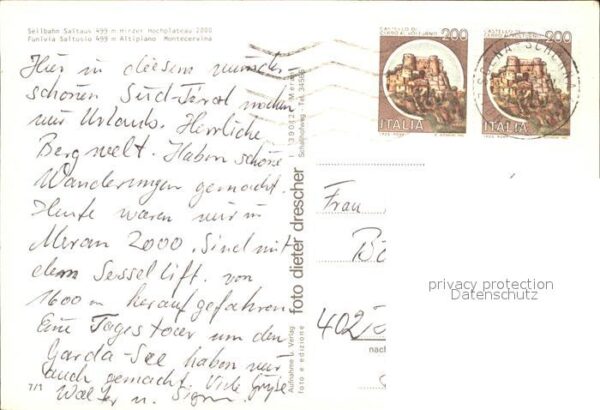 Seilbahn Saltaus 499 m Hirzer Hochplateau 2000
Funivia Saltusio 499 m Altipiano Montecervina
Hier in diesem wunder-
schönen Süd-Tirol machen
wir Urlaub. Herrliche
Bergwelt. Haben schöne
Wanderungen gemacht.
Heute waren wir in
Meran 2000. Sind mit
dem Sessellift von
1600 m heraufgefahren
Eine Tagestour um den
Garda-See haben wir
auch gemacht. Viele Grüße
Walter u.
7/1
Aufnahme u. Verlag
foto e edizione
foto dieter drescher
I 39012 Meran
Schafhofweg Tel.
CASTELLO DI
CERRO AL VOLTURNO
200
ITALIA
CASTELLO DI
CERRO AL VOLTURNO
200
ITALIA
Frau
402
nach
privacy protection
Datenschutz